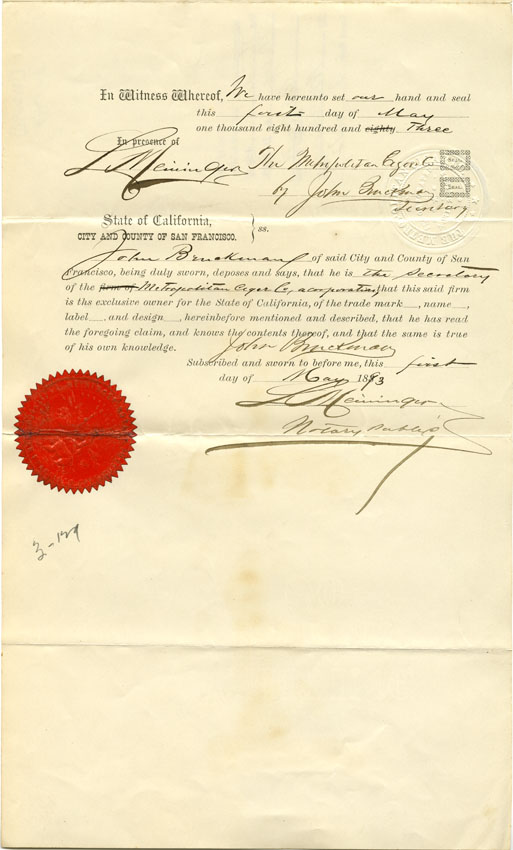 In Witness Whereof, We have hereunto set our hand and seal
this first day of May
one thousand eight hundred and eighty Three
In presence of
The Metropolitan Cigar Co
by John Bruckman
Secretary
State of California,
CITY AND COUNTY OF SAN FRANCISCO. } ss.
John Bruckman of said City and County of San
Francisco, being duly sworn, deposes and says, that he is the Secretary
of the firm of Metropolitan Cigar Co, a corporation, that this said firm
is ths exclusive owner for the State of California, of the trade mark , name ,
label , and design , hereinbefore mentioned and described, that he has read
the foregoing claim, and knows the contents thereof, and that the same is true
of his own knowledge. John Bruckman
Subscribed and sworn to before me, this first
day of May 1893
Notary Public